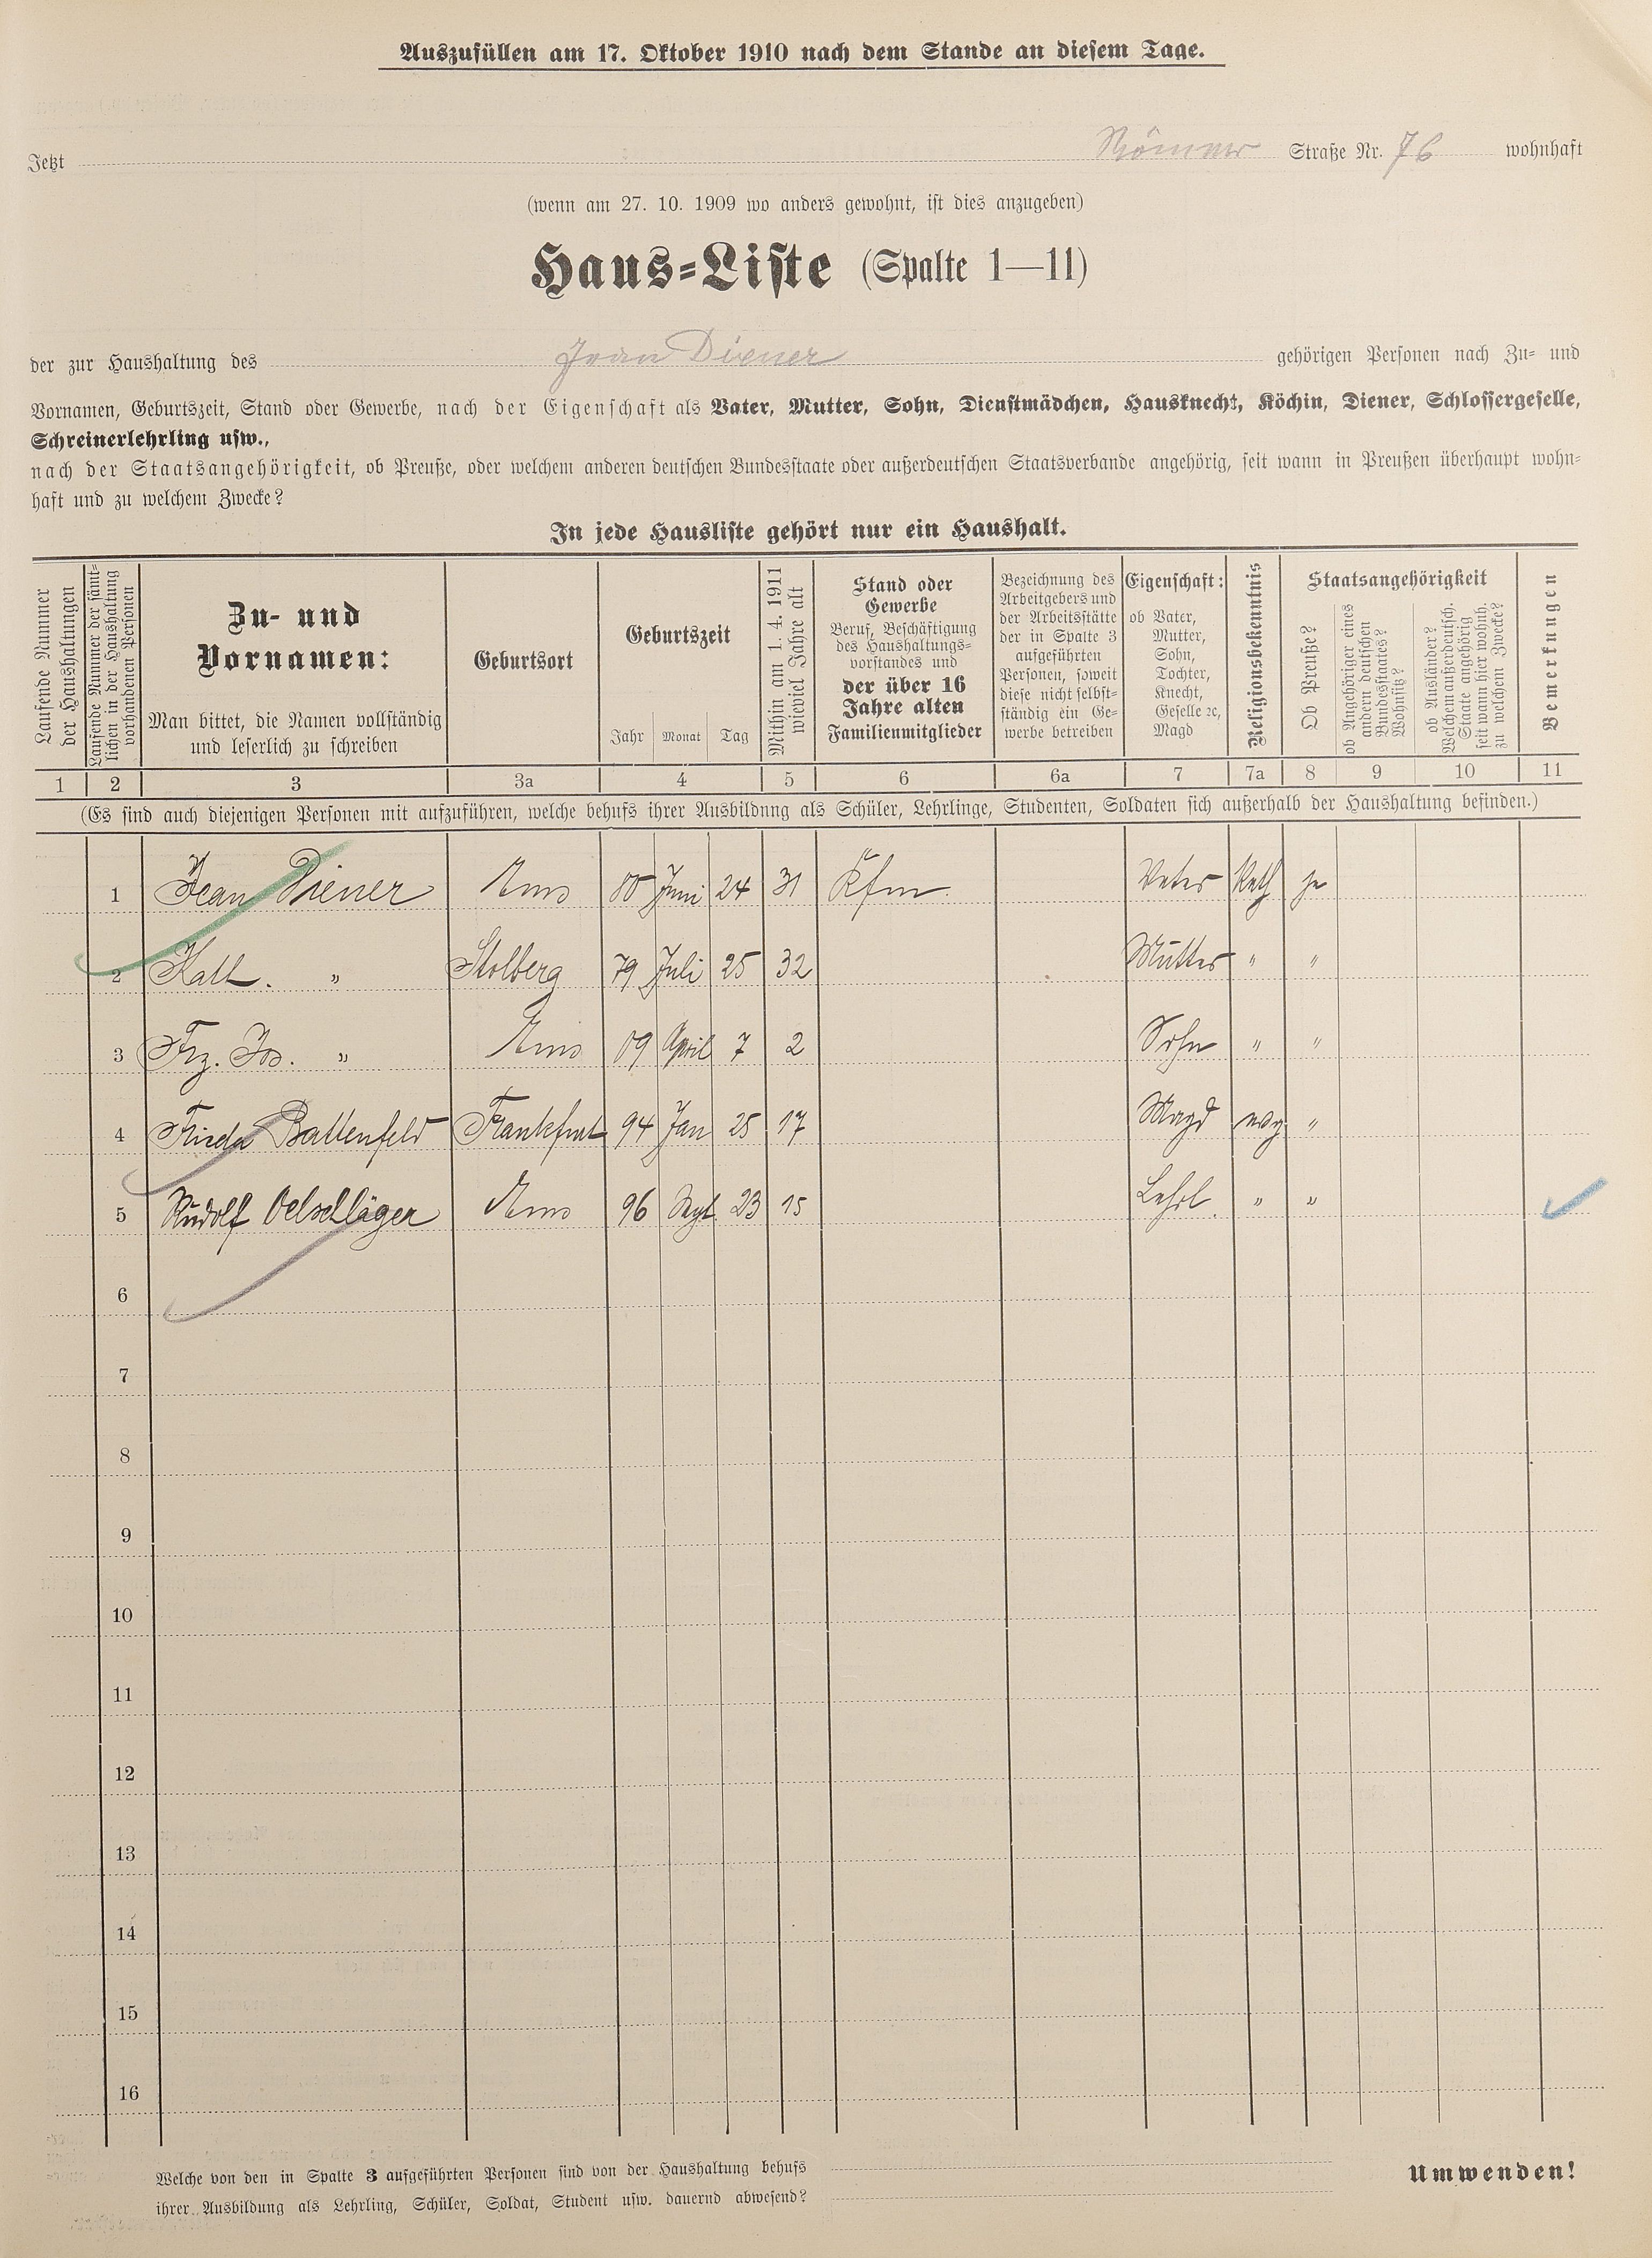 Auszufüllen am 17. Oktober 1910 nach dem Stande an diesem Tage.
Jetzt Römer Straße Nr. 76 wohnhaft
(wenn am 27. 10. 1909 wo anders gewohnt, ist dies anzugeben)
Haus-Liste (Spalte 1—11)
der zur Haushaltung des Jean Diener gehörigen Personen nach Zu- und
Vornamen, Geburtszeit, Stand oder Gewerbe, nach der Eigenschaft als Vater, Mutter, Sohn, Dienstmädchen, Hausknecht, Köchin, Diener, Schlossergeselle,
Schreinerlehrling usw.,
nach der Staatsangehörigkeit, ob Preuße, oder welchem anderen deutschen Bundesstaate oder außerdeutschen Staatsverbande angehörig, seit wann in Preußen überhaupt wohn-
haft und zu welchem Zwecke?
In jede Hausliste gehört nur ein Haushalt.
Laufende Nummer
der Haushaltungen
Laufende Nummer der sämt-
lichen in der Haushaltung
vorhandenen Personen
Zu- und
Vornamen:
Man bittet, die Namen vollständig
und leserlich zu schreiben
Geburtsort
Geburtszeit
Jahr Monat Tag
Mithin am 1. 4. 1911
wieviel Jahre alt
Stand oder
Gewerbe
Beruf, Beschäftigung
des Haushaltungs-
vorstandes und
der über 16
Jahre alten
Familienmitglieder
Bezeichnung des
Arbeitgebers und
der Arbeitsstätte
der in Spalte 3
aufgeführten
Personen, soweit
diese nicht selbst-
ständig ein Ge-
werbe betreiben
Eigenschaft:
ob Vater,
Mutter,
Sohn,
Tochter,
Knecht,
Geselle ꝛc,
Magd
Religionsbekenntnis
Staatsangehörigkeit
Ob Preuße?
ob Angehöriger eines
andern deutschen
Bundesstaates?
Wohnsitz?
ob Ausländer?
Welchem außerdeutsch.
Staate angehörig
seit wann hier wohnh.
zu welchem Zwecke?
Bemerkungen
1 2 3 3a 4 5 6 6a 7 7a 8 9 10 11
(Es sind auch diejenigen Personen mit aufzuführen, welche behufs ihrer Ausbildung als Schüler, Lehrlinge, Studenten, Soldaten sich außerhalb der Haushaltung befinden.)
1 Jean Diener Ems 80 Juni 24 31 Kfm. Vater Kath ja
2 Kath. " Stolberg 79 Juli 25 32 Mutter " "
3 Frz. Jos. " Ems 09 April 7 2 Sohn " "
4 Frieda Battenfeld Frankfurt 94 Jan 25 17 Magd evg "
5 Rudolf Oelschläger Ems 96 Sept. 23 15 Lehrl. " "
6
7
8
9
10
11
12
13
14
15
16
Welche von den in Spalte 3 aufgeführten Personen sind von der Haushaltung behufs
ihrer Ausbildung als Lehrling, Schüler, Soldat, Student usw. dauernd abwesend?
Umwenden!